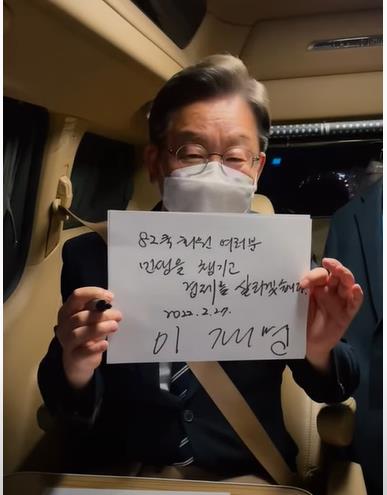 82쿡 회원 여러분
민생을 챙기고
경제를 살리겠습니다.
2022.2.27.
이재명